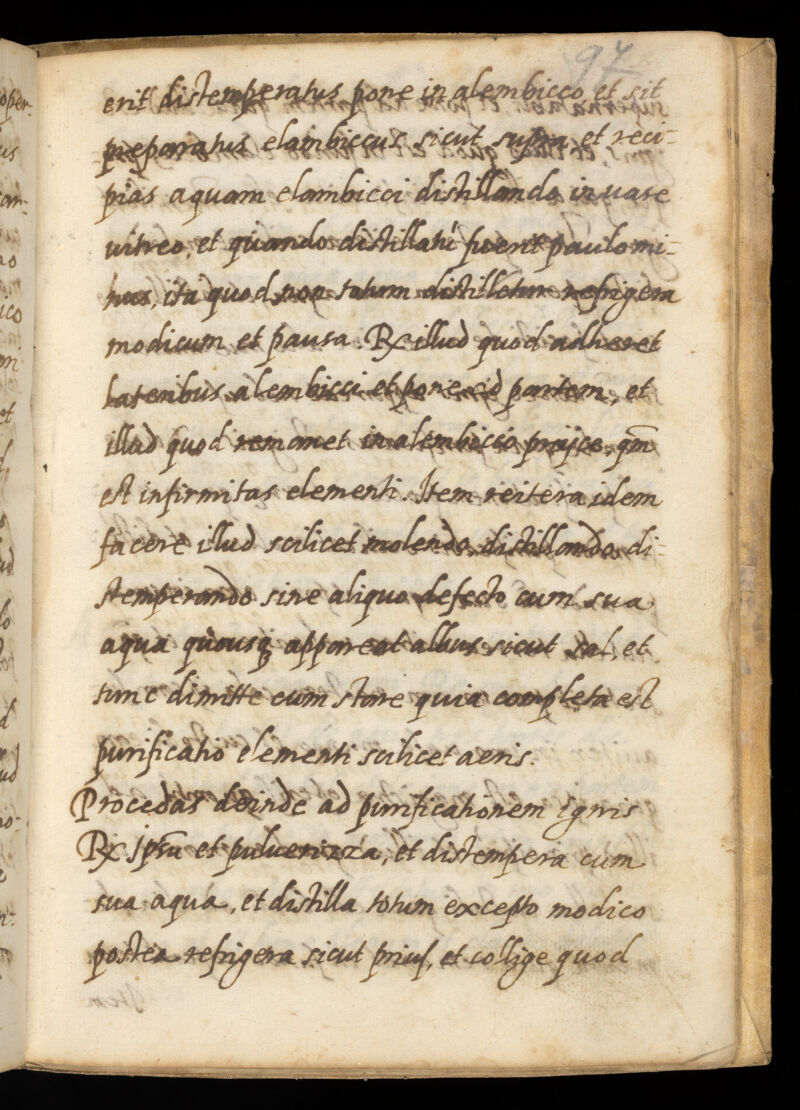 97
erit distemperatus pone in alembicco et sit
preparatus elambiccus sicut supra, et reci-
pias aquam elambicci distillando in uase
uitreo, et quando distillatũ fuerit paulo mi-
nus, ita quod non totum distilletur refrigera
modicum et pausa. Rx illud quod adheret
lateribus alembicci et pone ad partem, et
illud quod remanet in alembicco proijce, qm̃
est infirmitas elementi. Item reitera idem
facere illud scilicet molendo, distillando, di-
stemperando sine aliquo defecto cum sua
aqua quousq; appareat albus sicut sal, et
tunc dimitte eum stare quia completa est
purificatio elementi scilicet aeris.
Procedas deinde ad purificationem ignis
Rx ipsũ et puluerizza, et distempera cum
sua aqua, et distilla totum excepto modico
postea refrigera sicut prius, et collige quod